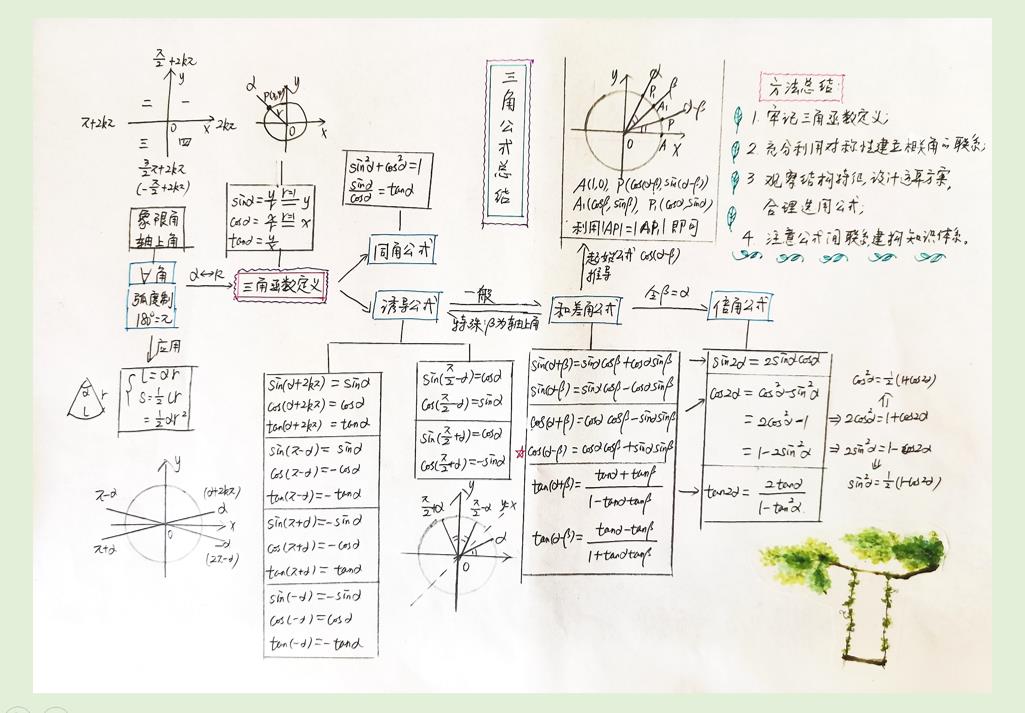 三角公式总结
π/2+2kπ
y
二 一
π+2kπ 0 x 2kπ
三 四
3/2π+2kπ
(-π/2+2kπ)
象限角
轴上角
∀角
弧度制
180°=π
应用
l=αr
S=1/2lr
=1/2αr²
α r
L
y
π-α (α+2kπ)
α
0 x
π+α -α
(2π-α)
α y
P(x,y)
r
0 x
sinα=y/r r=1 y
cosα=x/r r=1 x
tanα=y/x
α↔R
三角函数定义
sin²α+cos²α=1
sinα/cosα=tanα
同角公式
诱导公式
sin(α+2kπ)=sinα
cos(α+2kπ)=cosα
tan(α+2kπ)=tanα
sin(π-α)=sinα
cos(π-α)=-cosα
tan(π-α)=-tanα
sin(π+α)=-sinα
cos(π+α)=-cosα
tan(π+α)=tanα
sin(-α)=-sinα
cos(-α)=cosα
tan(-α)=-tanα
sin(π/2-α)=cosα
cos(π/2-α)=sinα
sin(π/2+α)=cosα
cos(π/2+α)=-sinα
y
π/2+α π/2-α y=x
α
0 x
一般
特殊:β为轴上角
y α
P₁ β
A₁ α-β
P
0 A x
A(1,0), P(cos(α-β),sin(α-β))
A₁(cosβ,sinβ), P₁(cosα,sinα)
利用|AP|=|A₁P₁|即可
起始公式 cos(α-β)
推导
和差角公式
sin(α+β)=sinαcosβ+cosαsinβ
sin(α-β)=sinαcosβ-cosαsinβ
cos(α+β)=cosαcosβ-sinαsinβ
☆cos(α-β)=cosαcosβ+sinαsinβ
tan(α+β)=(tanα+tanβ)/(1-tanαtanβ)
tan(α-β)=(tanα-tanβ)/(1+tanαtanβ)
令β=α
倍角公式
sin2α=2sinαcosα
cos2α=cos²α-sin²α
=2cos²α-1 ⇒2cos²α=1+cos2α
=1-2sin²α ⇒2sin²α=1-cos2α
tan2α=2tanα/(1-tan²α)
cos²α=1/2(1+cos2α)
sin²α=1/2(1-cos2α)
方法总结:
1. 牢记三角函数定义;
2. 充分利用对称性建立相关角的联系;
3 观察结构特征,设计运算方案,
合理选用公式;
4. 注意公式间联系,建构知识体系。